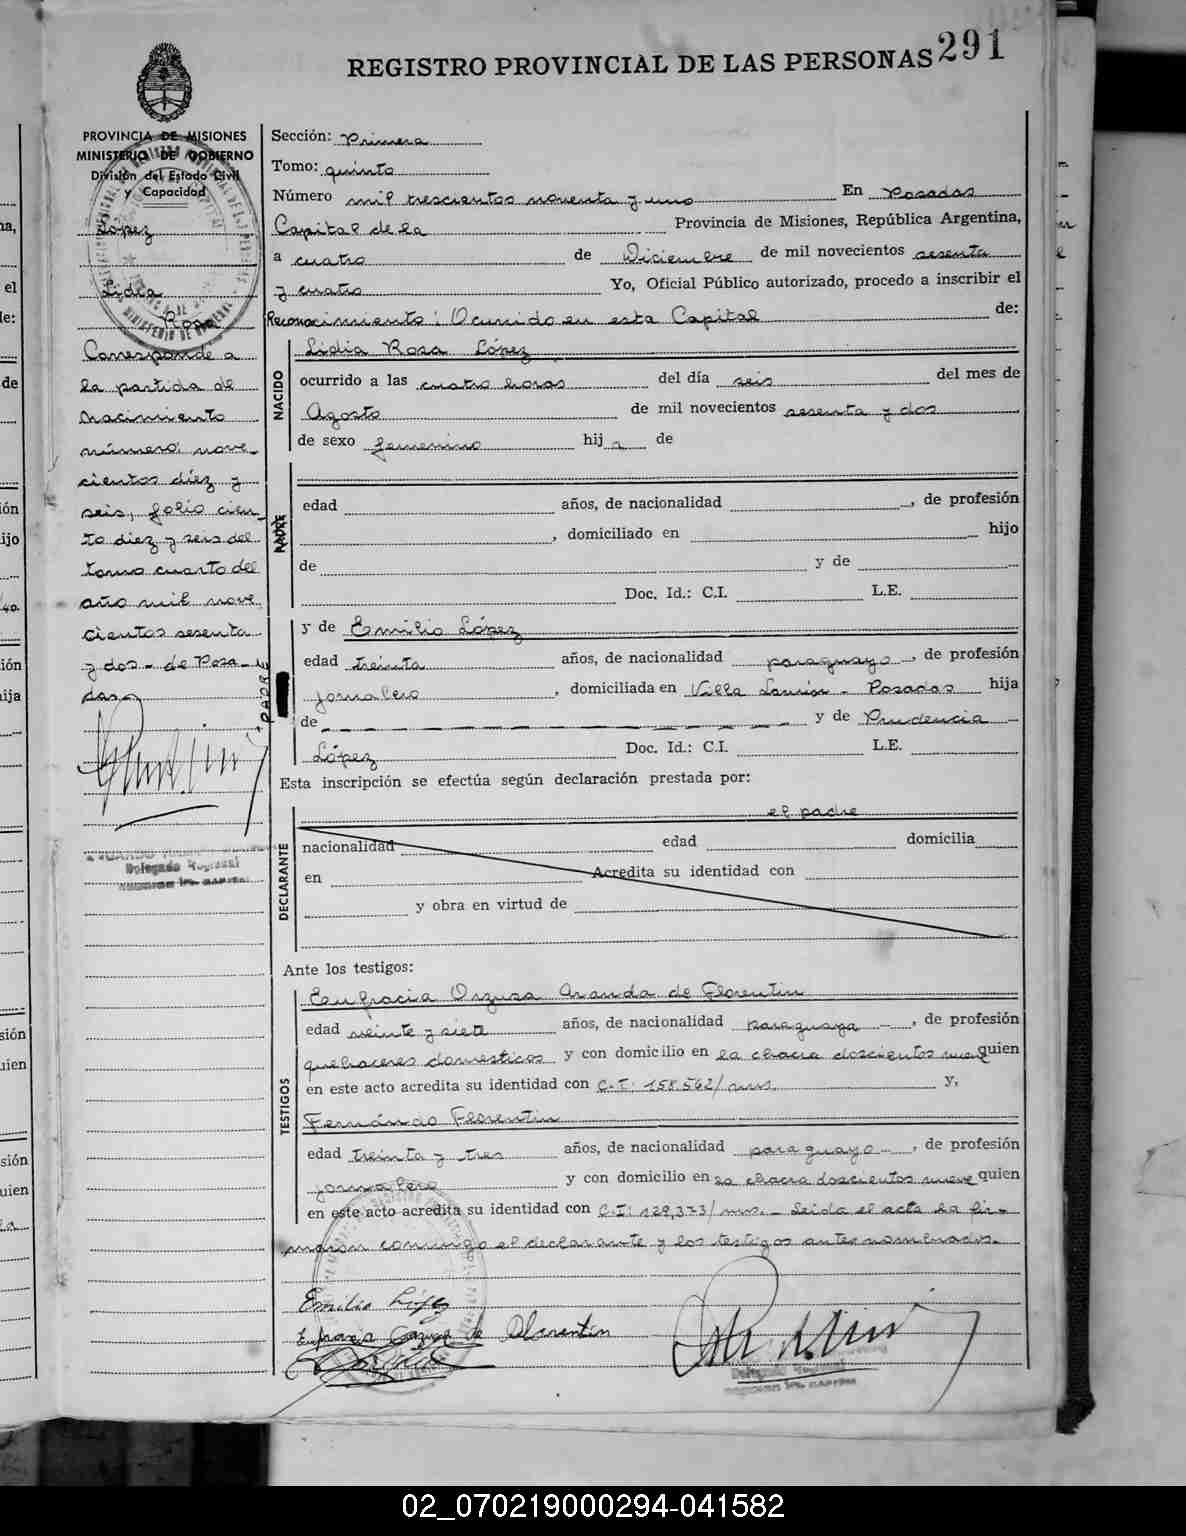 291
REGISTRO PROVINCIAL DE LAS PERSONAS
PROVINCIA DE MISIONES
MINISTERIO DE GOBIERNO
División del Estado Civil
y Capacidad
López
Lidia
Rosa
Corresponde a
la partida de
nacimiento
número: nove-
cientos diéz y
seis, folio cien-
to diez y seis del
tomo cuarto del
año mil nove
cientos sesenta
y dos - de Posa-
das
Delegado Regional
Sección: Primera
Tomo: quinto
Número mil trescientos noventa y uno En Posadas
Capital de la Provincia de Misiones, República Argentina,
a cuatro de Diciembre de mil novecientos sesenta
y cuatro Yo, Oficial Público autorizado, procedo a inscribir el
Reconocimiento: Ocurrido en esta Capital de:
NACIDO
Lidia Rosa López
ocurrido a las cuatro horas del día seis del mes de
Agosto de mil novecientos sesenta y dos
de sexo femenino hij a de
edad años, de nacionalidad , de profesión
, domiciliado en hijo
de y de
Doc. Id.: C.I. L.E.
PADRE
y de Emilio López
edad treinta años, de nacionalidad paraguayo , de profesión
jornalero , domiciliada en Villa - Posadas hija
de y de Prudencia
López Doc. Id.: C.I. L.E.
Esta inscripción se efectúa según declaración prestada por:
el padre
DECLARANTE
nacionalidad edad domicilia
en Acredita su identidad con
y obra en virtud de
Ante los testigos:
TESTIGOS
Eufracia Orzusa Aranda de Florentin
edad veinte y siete años, de nacionalidad paraguaya - , de profesión
quehaceres domesticos y con domicilio en la chacra doscientos nueve quien
en este acto acredita su identidad con C.I: 158.562/mns. y,
Fernándo Florentin
edad treinta y tres años, de nacionalidad paraguayo - , de profesión
jornalero y con domicilio en la chacra doscientos nueve quien
en este acto acredita su identidad con C.I: 129,373/mns. - Leida el acta la fir-
maron conmigo el declarante y los testigos antes nombrados.
Emilio López
de Florentin
Delegado Regional
02_070219000294-041582